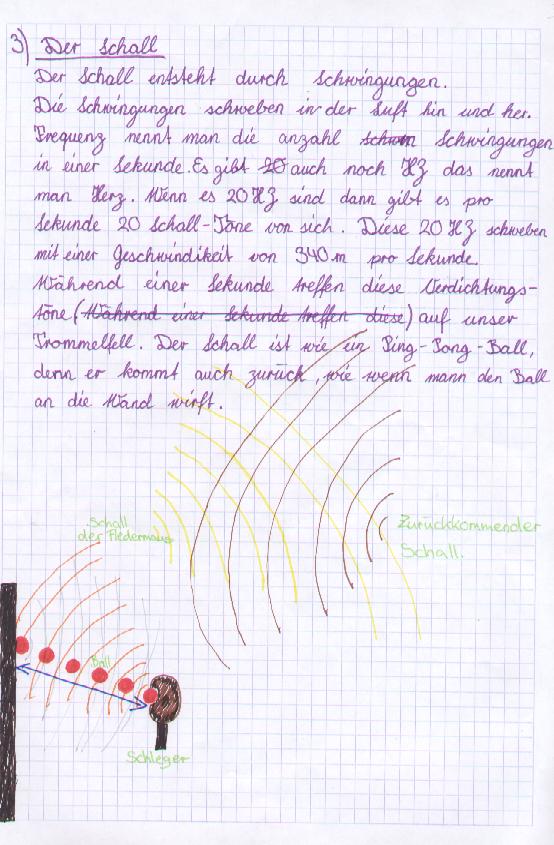 3) Der Schall
Der Schall entsteht durch Schwingungen.
Die Schwingungen schweben in der Luft hin und her.
Frequenz nennt man die anzahl schwin Schwingungen
in einer Sekunde. Es gibt 20 auch noch HZ das nennt
man Herz. Wenn es 20 HZ sind dann gibt es pro
Sekunde 20 Schall-Töne von sich. Diese 20 HZ schweben
mit einer Geschwindikeit von 340 m pro Sekunde.
Während einer Sekunde treffen diese Verdichtungs-
töne (Während einer Sekunde treffen diese) auf unser
Trommelfell. Der Schall ist wie ein Ping-Pong-Ball,
denn er kommt auch zurück, wie wenn mann den Ball
an die Wand wirft.
Schall
der Fledermaus
Zurückkommender
Schall.
Ball
Schleger